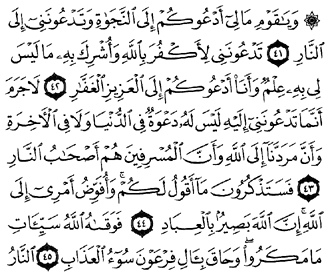 ۞ وَيَٰقَوْمِ مَا لِيٓ أَدْعُوكُمْ إِلَى ٱلنَّجَوٰةِ وَتَدْعُونَنِيٓ إِلَى
ٱلنَّارِ ٤١ تَدْعُونَنِي لِأَكْفُرَ بِٱللَّهِ وَأُشْرِكَ بِهِۦ مَا لَيْسَ
لِي بِهِۦ عِلْمٌ وَأَنَا۠ أَدْعُوكُمْ إِلَى ٱلْعَزِيزِ ٱلْغَفَّٰرِ ٤٢ لَا جَرَمَ
أَنَّمَا تَدْعُونَنِيٓ إِلَيْهِ لَيْسَ لَهُۥ دَعْوَةٌ فِي ٱلدُّنْيَا وَلَا فِي ٱلْءَاخِرَةِ
وَأَنَّ مَرَدَّنَآ إِلَى ٱللَّهِ وَأَنَّ ٱلْمُسْرِفِينَ هُمْ أَصْحَٰبُ ٱلنَّارِ
٤٣ فَسَتَذْكُرُونَ مَآ أَقُولُ لَكُمْ ۚ وَأُفَوِّضُ أَمْرِيٓ إِلَى
ٱللَّهِ ۚ إِنَّ ٱللَّهَ بَصِيرٌۢ بِٱلْعِبَادِ ٤٤ فَوَقَىٰهُ ٱللَّهُ سَيِّـَٔاتِ
مَا مَكَرُوا۟ ۖ وَحَاقَ بِـَٔالِ فِرْعَوْنَ سُوٓءُ ٱلْعَذَابِ ٤٥ ٱلنَّارُ